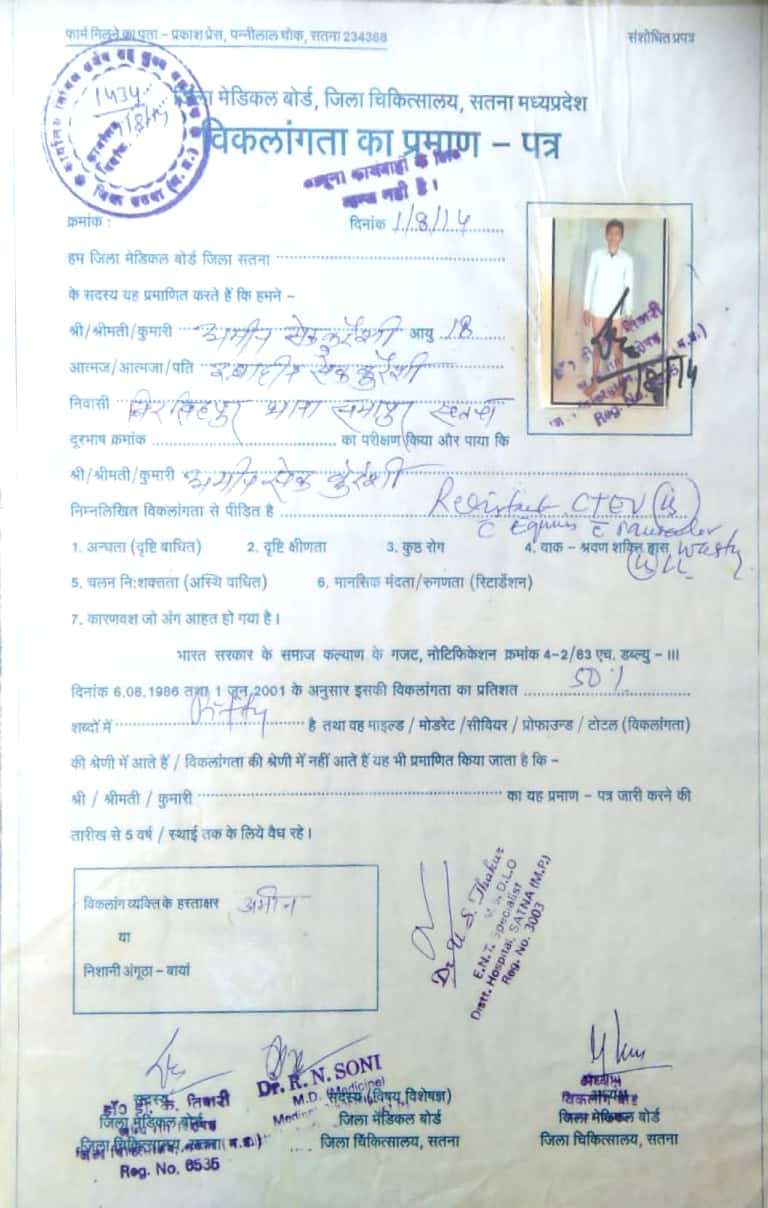 फार्म मिलने का पता – प्रकाश प्रेस, पन्नीलाल चौक, सतना 234368
संशोधित प्रपत्र
1434
जिला मेडिकल बोर्ड, जिला चिकित्सालय, सतना मध्यप्रदेश
विकलांगता का प्रमाण – पत्र
कानूनी कार्यवाही के लिए
मान्य नही है।
क्रमांक :
दिनांक 1/8/14
हम जिला मेडिकल बोर्ड जिला सतना
के सदस्य यह प्रमाणित करते हैं कि हमने –
श्री/श्रीमती/कुमारी अमीन सेक कुरैशी आयु 18
आत्मज/आत्मजा/पति सेक कुरैशी
निवासी थाना सभापुर सतना
दूरभाष क्रमांक का परीक्षण किया और पाया कि
श्री/श्रीमती/कुमारी अमीन सेक कुरैशी
निम्नलिखित विकलांगता से पीड़ित है CTEV
Equinus
1. अन्धता (दृष्टि बाधित) 2. दृष्टि क्षीणता 3. कुष्ठ रोग 4. वाक – श्रवण शक्ति ह्रास
5. चलन नि:शक्तता (अस्थि वाधित) 6. मानसिक मंदता/रुगणता (रिटार्डेशन)
7. कारणवश जो अंग आहत हो गया है।
भारत सरकार के समाज कल्याण के गजट, नोटिफिकेशन क्रमांक 4-2/83 एच. डब्ल्यु – III
दिनांक 6.08.1986 तथा 1 जून 2001 के अनुसार इसकी विकलांगता का प्रतिशत 50%
शब्दों में Fifty है तथा वह माइल्ड / मोडरेट /सीवियर / प्रोफाउन्ड / टोटल (विकलांगता)
की श्रेणी में आते हैं / विकलांगता की श्रेणी में नहीं आते हैं यह भी प्रमाणित किया जाता है कि –
श्री / श्रीमती / कुमारी का यह प्रमाण – पत्र जारी करने की
तारीख से 5 वर्ष / स्थाई तक के लिये वैध रहे।
विकलांग व्यक्ति के हस्ताक्षर अमीन
या
निशानी अंगूठा – बायां
Dr. U. S. Thakur
M.S. D.L.O
E.N.T. Specialist
Distt. Hospital, SATNA (M.P.)
Reg. No. 3003
सदस्य
डॉ० डी. के. तिवारी
जिला मेडिकल बोर्ड
जिला चिकित्सालय, सतना (म.प्र.)
Reg. No. 6535
Dr. R. N. SONI
M.D. (Medicine)
सदस्य (विषय विशेषज्ञ)
जिला मेडिकल बोर्ड
जिला चिकित्सालय, सतना
अध्यक्ष
जिला मेडिकल बोर्ड
जिला चिकित्सालय, सतना